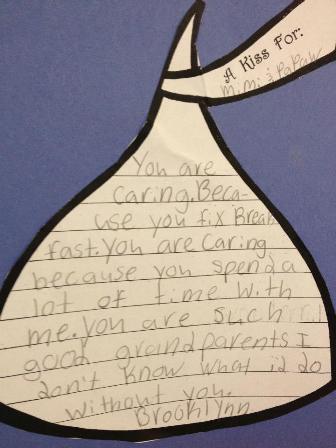 A Kiss For:
Mimi & PaPaw
You are
caring. Beca-
use you fix Break
fast. You are caring
because you spend a
lot of time with
me. you are such
good grandparents I
don't know what i'd do
without you.
Brooklynn